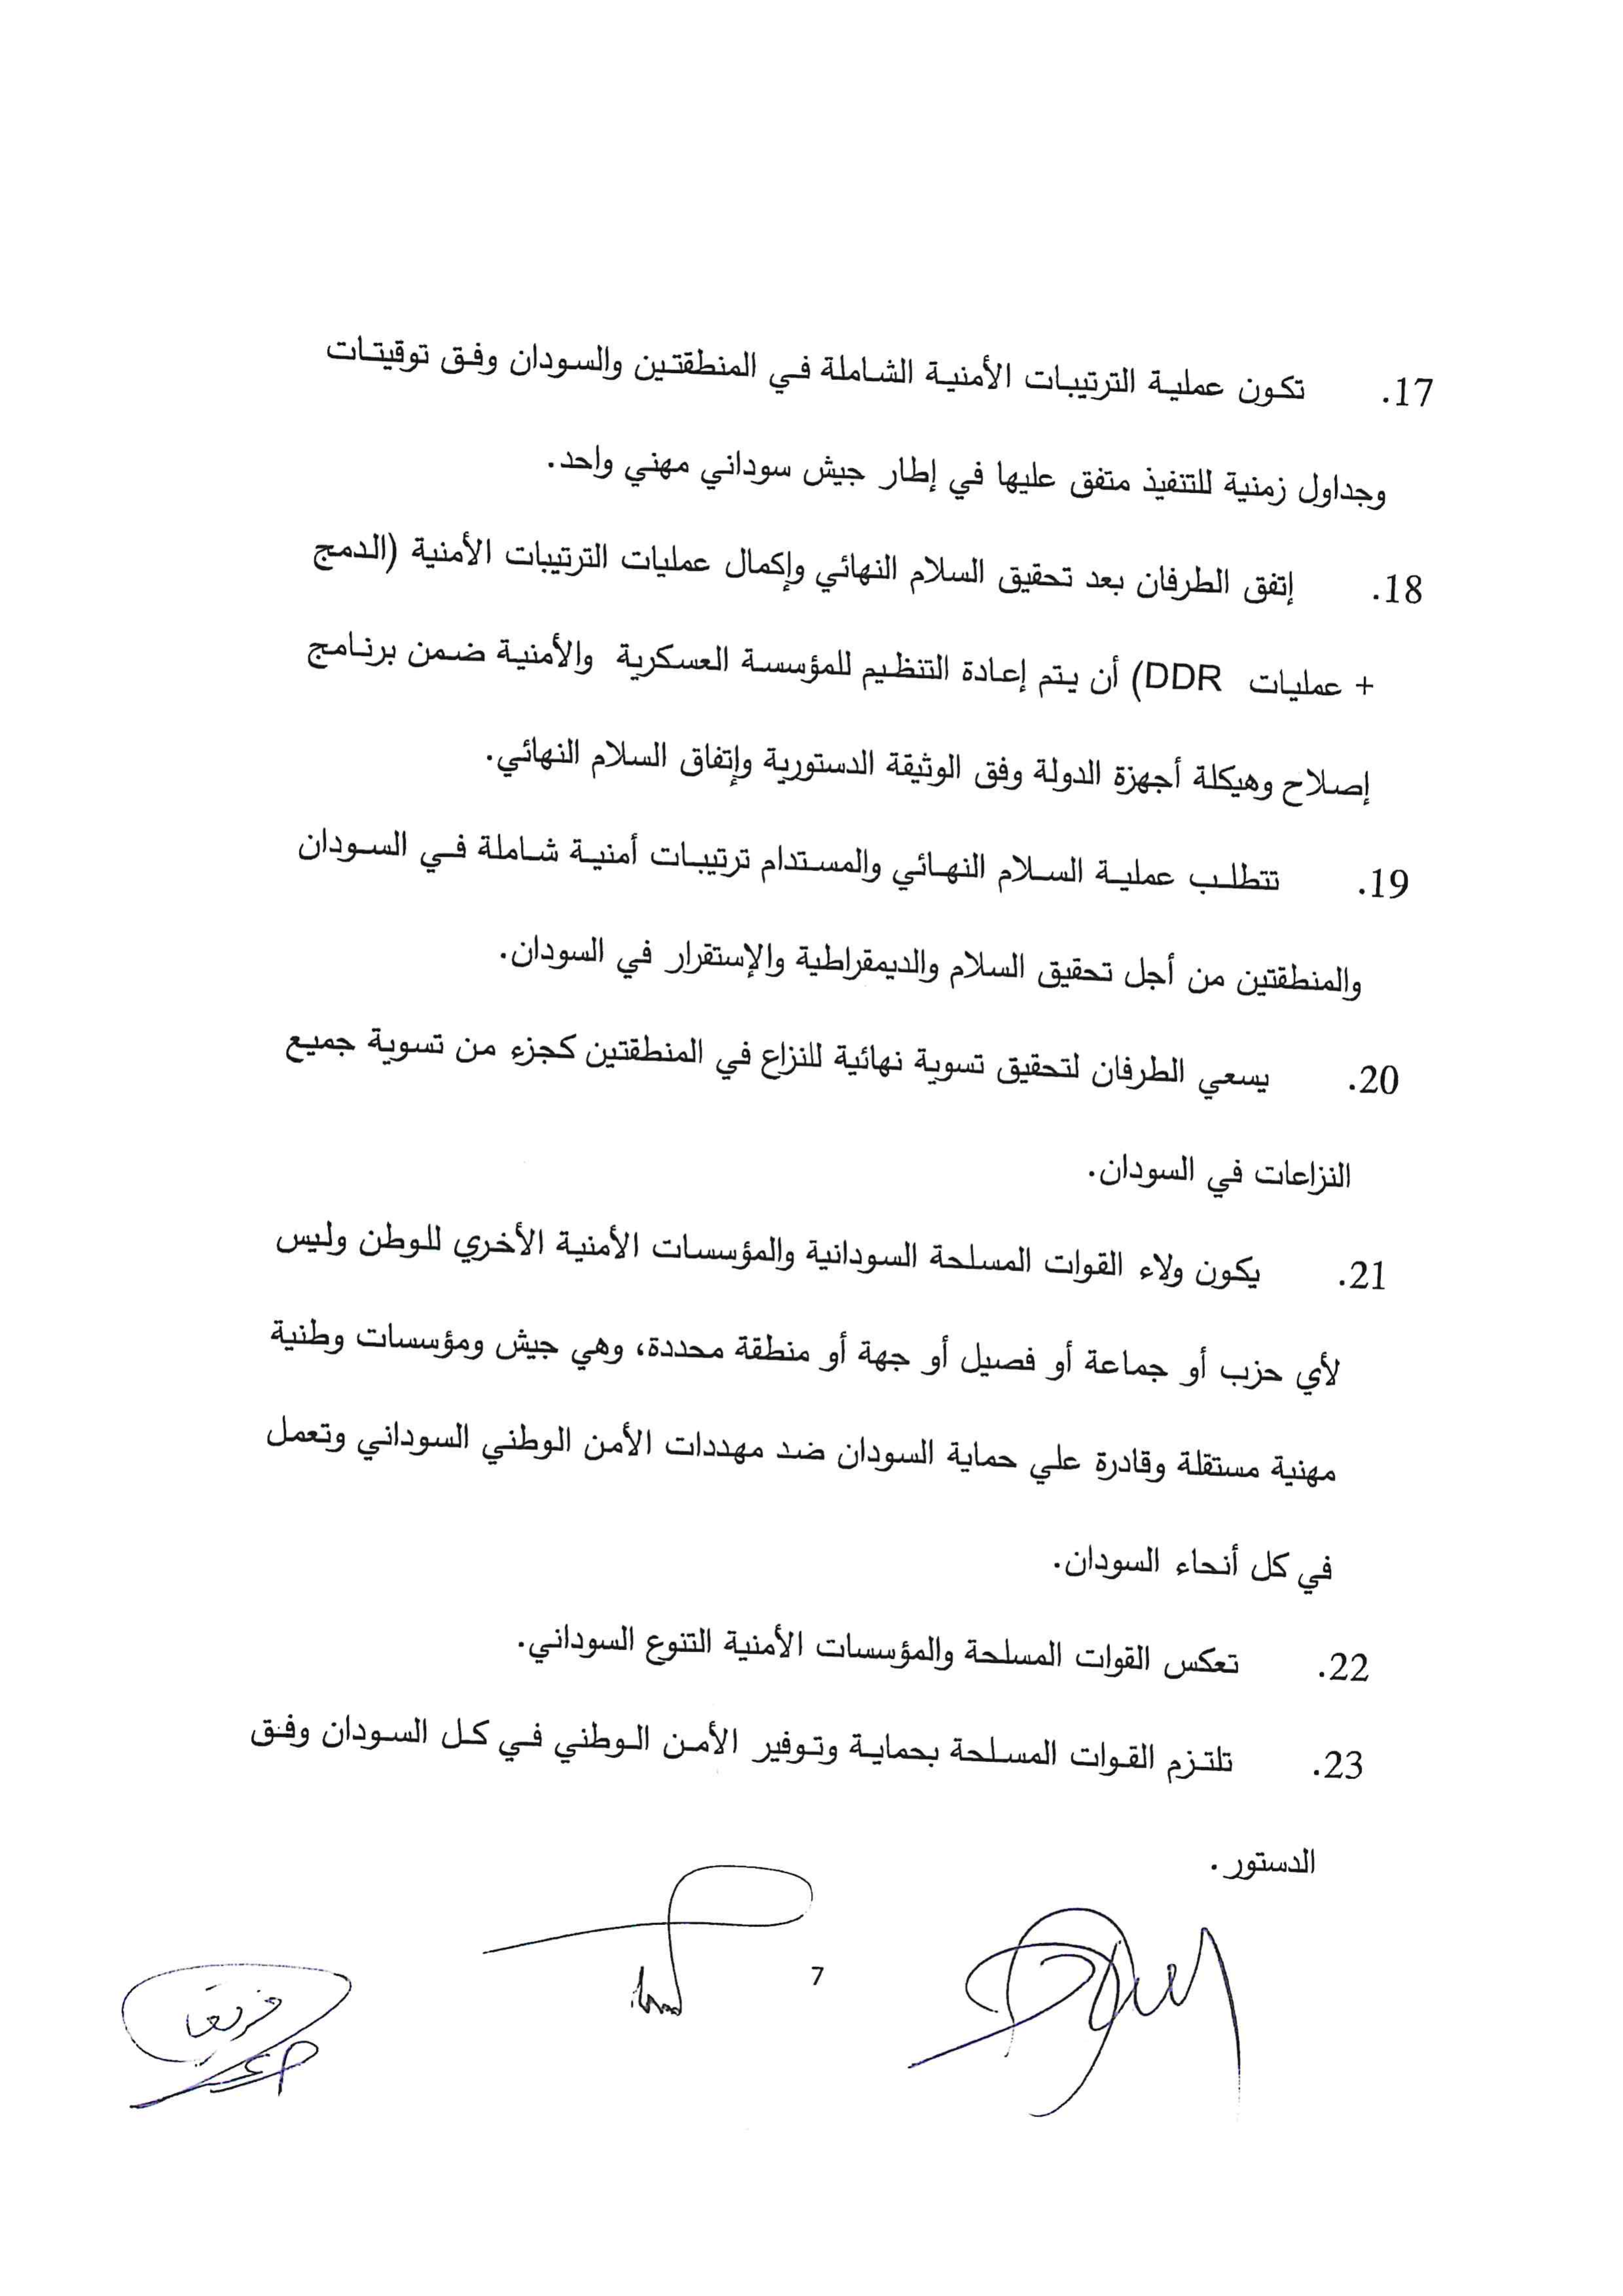 17. تكون عملية الترتيبات الأمنية الشاملة في المنطقتين والسودان وفق توقيتات
وجداول زمنية للتنفيذ متفق عليها في إطار جيش سوداني مهني واحد.
18. إتفق الطرفان بعد تحقيق السلام النهائي وإكمال عمليات الترتيبات الأمنية (الدمج
+ عمليات DDR) أن يتم إعادة التنظيم للمؤسسة العسكرية والأمنية ضمن برنامج
إصلاح وهيكلة أجهزة الدولة وفق الوثيقة الدستورية وإتفاق السلام النهائي.
19. تتطلب عملية السلام النهائي والمستدام ترتيبات أمنية شاملة في السودان
والمنطقتين من أجل تحقيق السلام والديمقراطية والإستقرار في السودان.
20. يسعي الطرفان لتحقيق تسوية نهائية للنزاع في المنطقتين كجزء من تسوية جميع
النزاعات في السودان.
21. يكون ولاء القوات المسلحة السودانية والمؤسسات الأمنية الأخري للوطن وليس
لأي حزب أو جماعة أو فصيل أو جهة أو منطقة محددة، وهي جيش ومؤسسات وطنية
مهنية مستقلة وقادرة علي حماية السودان ضد مهددات الأمن الوطني السوداني وتعمل
في كل أنحاء السودان.
22. تعكس القوات المسلحة والمؤسسات الأمنية التنوع السوداني.
23. تلتزم القوات المسلحة بحماية وتوفير الأمن الوطني في كل السودان وفق
الدستور.
7